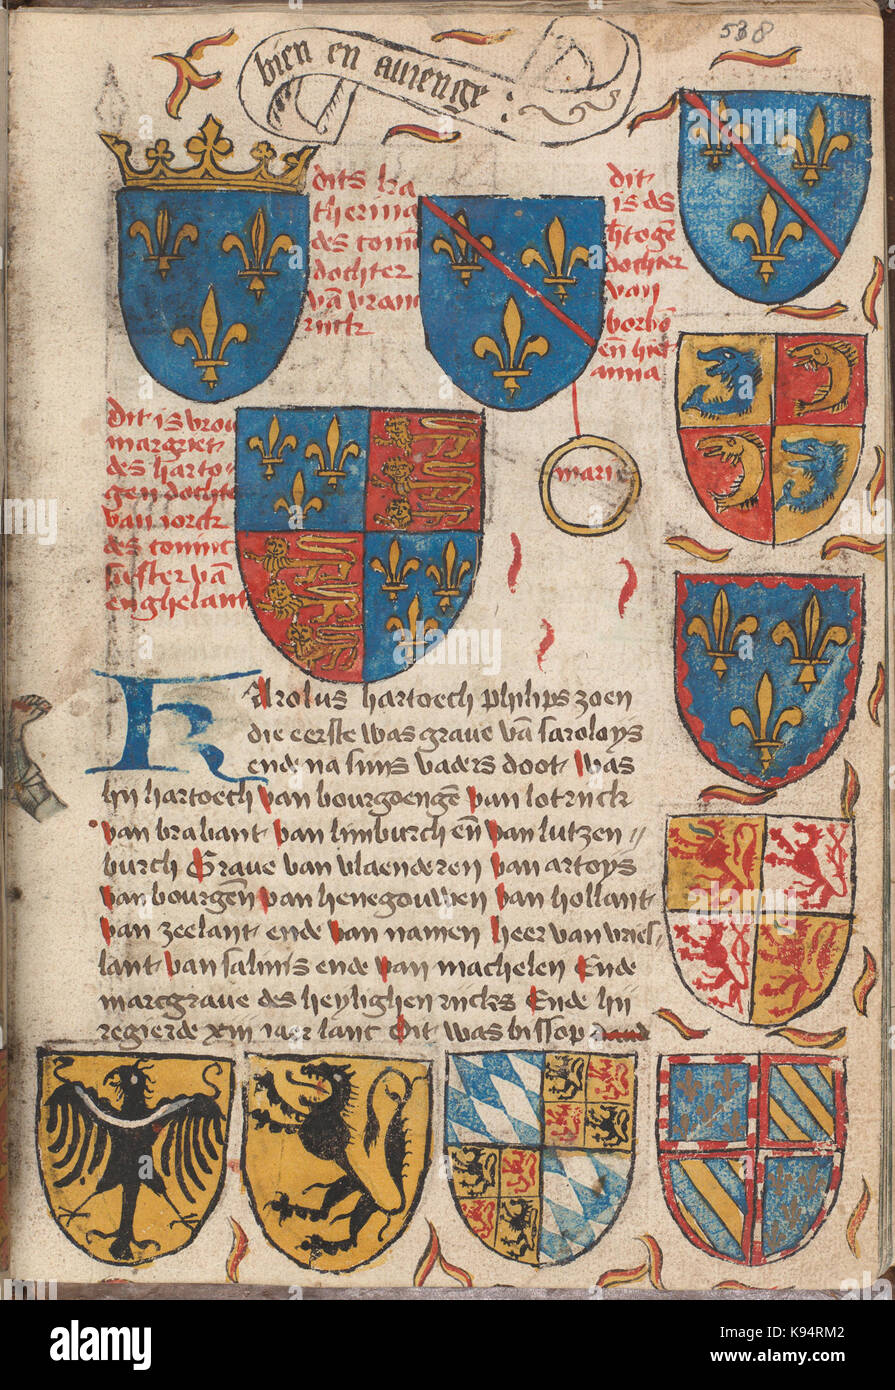 538
bien en aurenge :
dits ka
therina
des conīc
dochter
vā vranc
rijck
dit
is ds
htogē
dochter
van
borbō
eñ hiet
anna
dit is vrou
margriet
des harto-
gen dochte
van iorck
des coninc
suster vā
enghelant
marie
Karolus hartoech philips zoen
die eerste was graue vā saroloys
ende na sijns vaders doot was
hij hartoech van bourgoengē van lotrijck
van brabant van limburch eñ van lutzen //
burch Graue van vlaenderen van artoys
van bourgēn van henegouwen van hollant
van zeelant ende van namen heer van vries-
lant van salins ende van machelen Ende
marcgraue des heylighen rijcks Ende hij
regierde xiij iaer lanc Dit was bissop
a
alamy stock photo
K94RM2
www.alamy.com